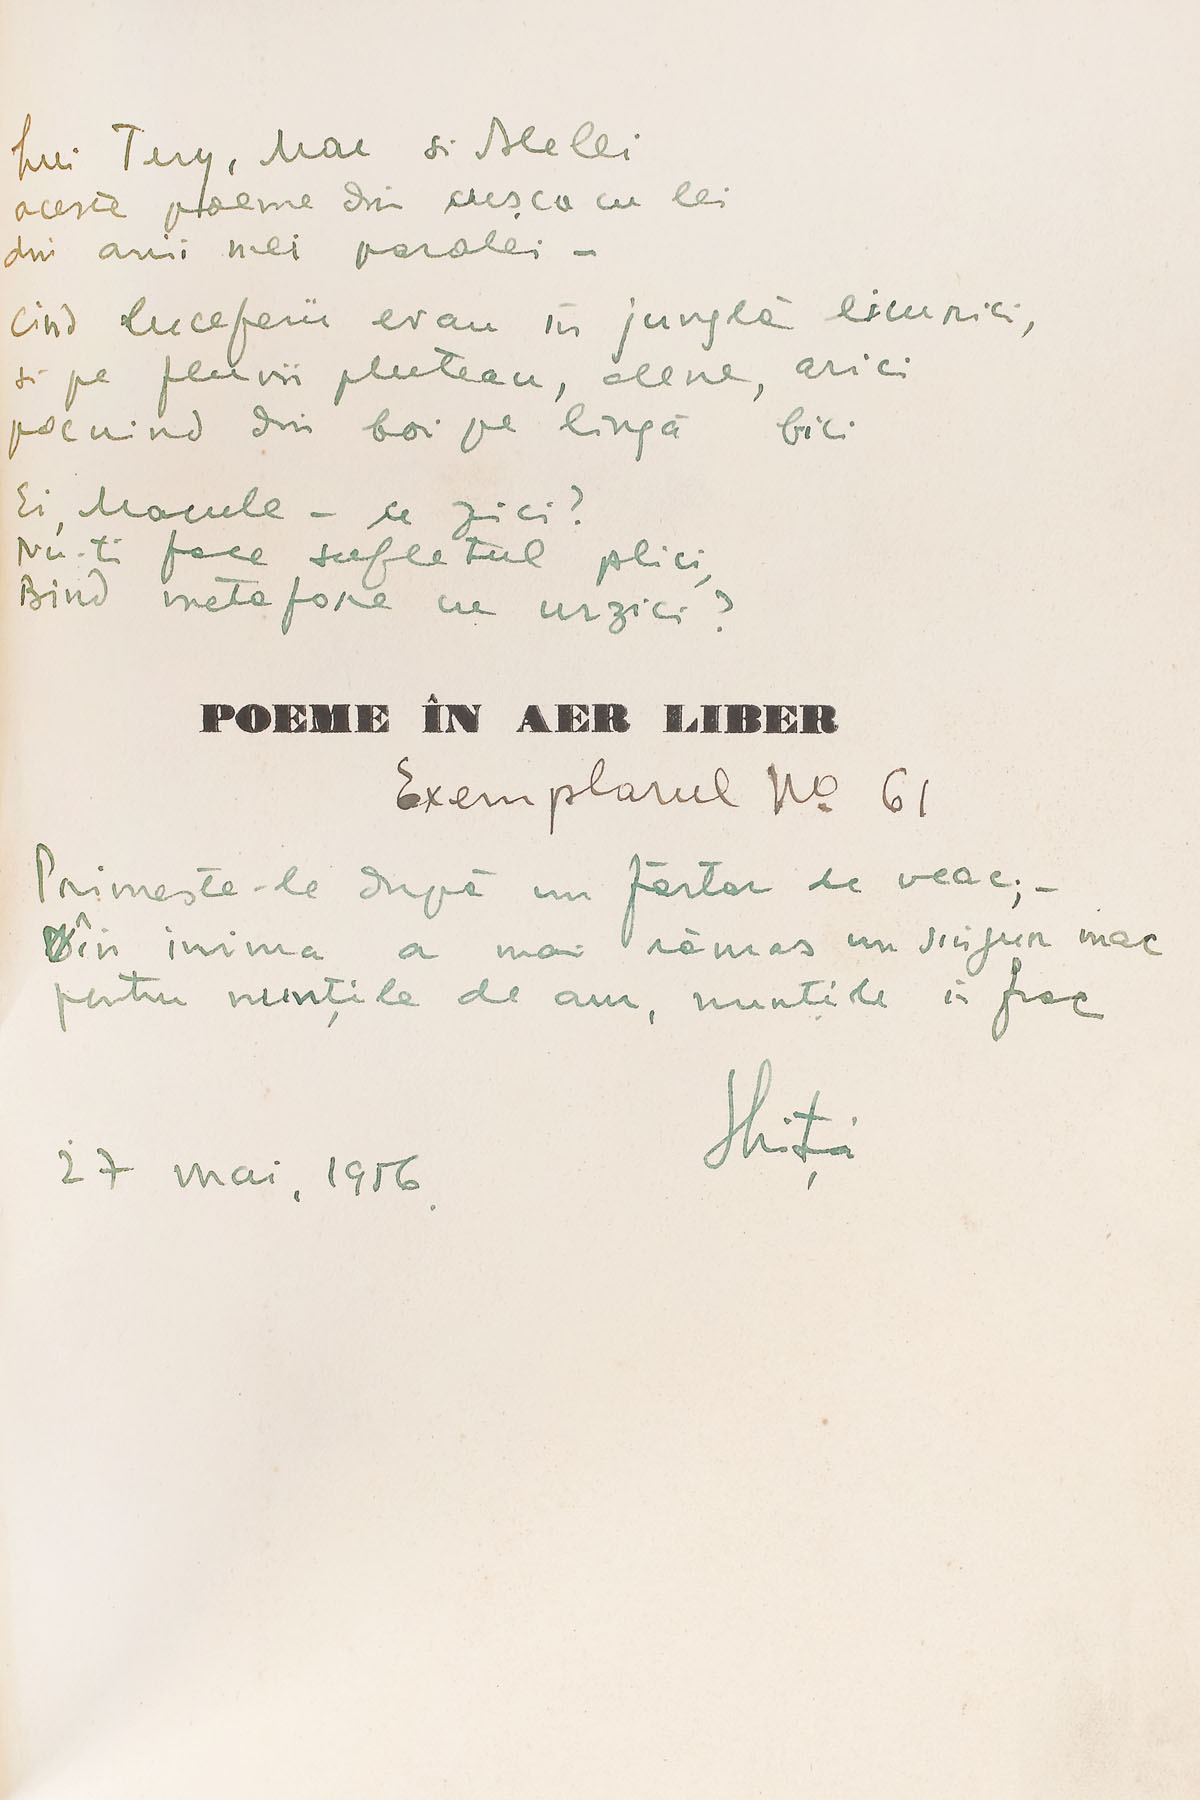 Lui Tery, Mac si Alelei
aceste poeme din cușca cu lei
din anii mei paralei –
Cînd luceferii erau în junglă licurici,
si pe fluvii pluteau, alene, arici
pocnind din boi pe lîngă bici
Ei, Macule – ce zici?
Nu-ti face sufletul plici,
Bînd metafore cu urzici?
POEME ÎN AER LIBER
Exemplarul No 61
Primește-le după un fărtar de veac; –
în inima a mai rămas un singur mac
pentru nunțile de aur, nunțile în frac
Ghiță
27 mai, 1956.